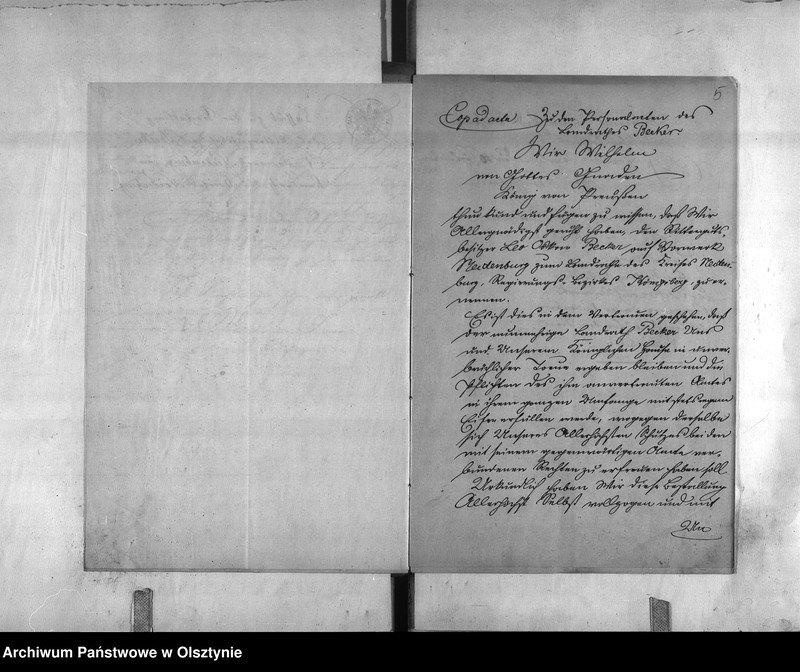 5
Cop ad acta Zu den Personalacten des
Landrathes Becker
Wir Wilhelm
von Gottes Gnaden
König von Preußen
thun kund und fügen zu wissen, daß Wir
Allergnädigst geruht haben, den Ritterguts-
besitzer Leo Becker auf Vorwerk
Neidenburg zum Landrathe des Kreises Neiden-
burg, Regierungs-Bezirkes Königsberg, zu er-
nennen.
Es ist dies in dem Vertrauen geschehen, daß
der nunmehrige Landrath Becker Uns
und Unserem Königlichen Hause in unver-
brüchlicher Treue ergeben bleiben und die
Pflichten des ihm anvertrauten Amtes
in ihrem ganzen Umfange mit stets regem
Eifer erfüllen werde, wogegen derselbe
sich Unseres Allerhöchsten Schutzes bei den
mit seinem gegenwärtigen Amte ver-
bundenen Rechten zu erfreuen haben soll.
Urkundlich haben Wir diese Bestallung
Allerhöchst Selbst vollzogen und mit
Un
Archiwum Państwowe w Olsztynie